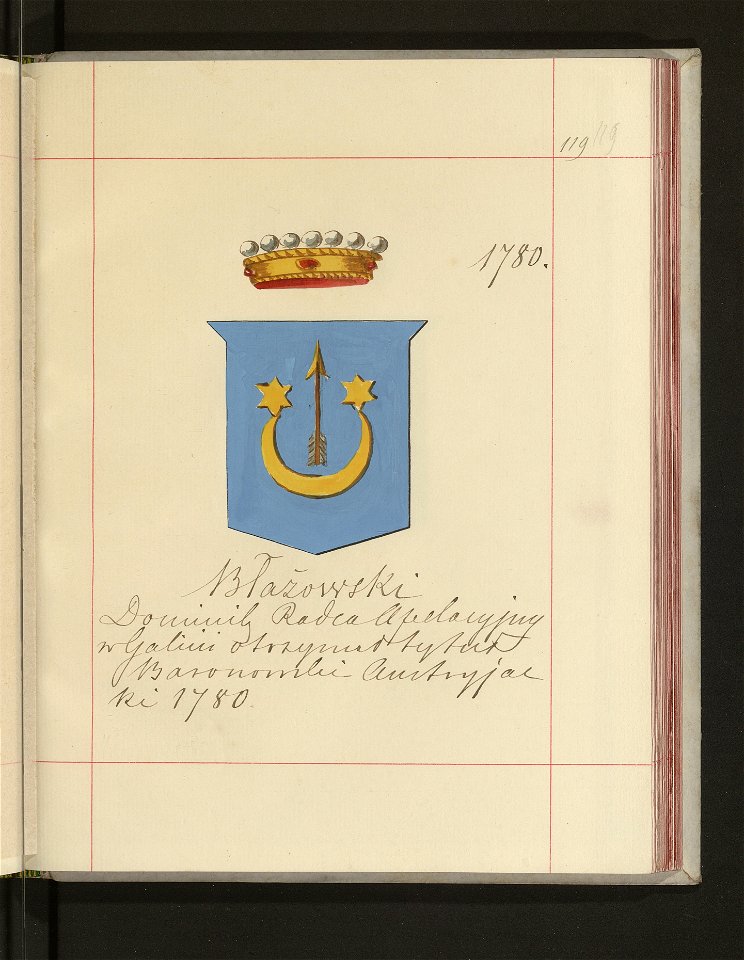 119 119
1780.
Błażowski
Dominik Radca Apelacyjny
w Galicii otrzymał tytuł
Baronowski Austryjac
ki 1780.